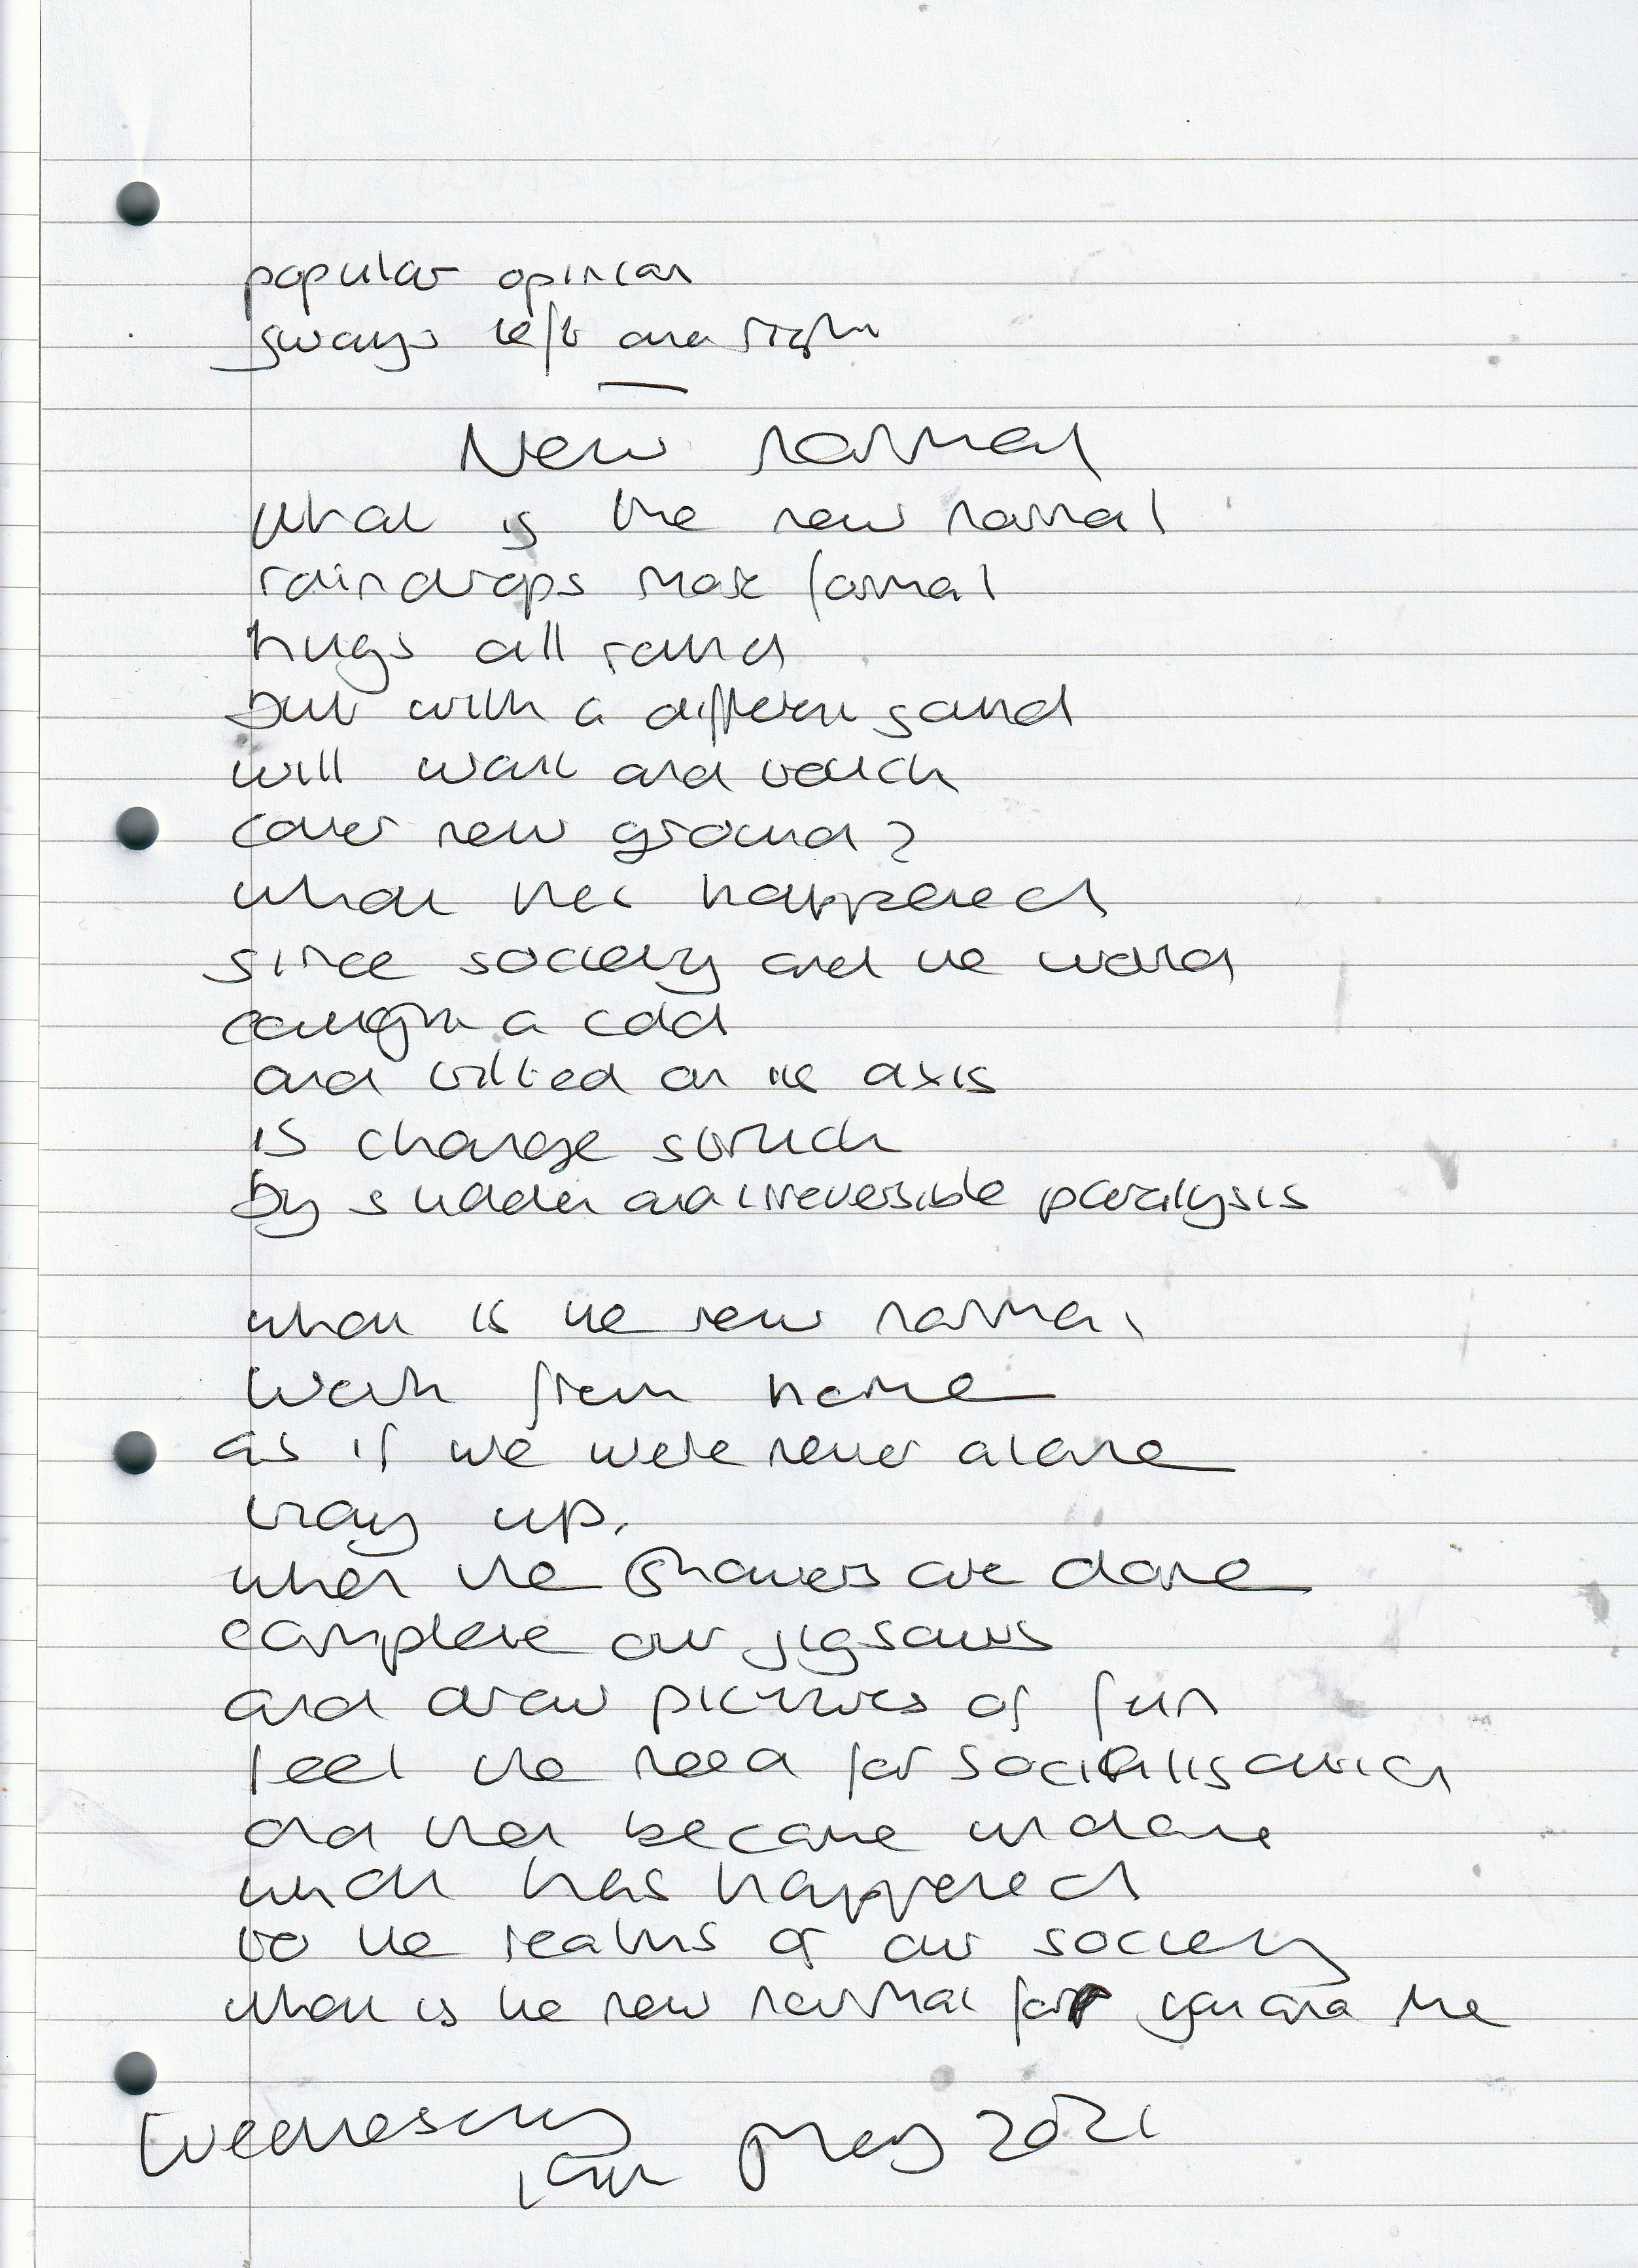 popular opinion
sways left and right
New normal
what is the new normal
raindrops more formal
hugs all round
but with a different sound
will walk and touch
cover new ground?
what has happened
since society and the world
caught a cold
and tilted on its axis
is change struck
by sudden and irreversible paralysis
what is the new normal
work from home
as if we were never alone
tidy up,
when the showers are done
complete our jigsaws
and draw pictures of fun
feel the need for socialisation
and then become undone
what has happened
to the realms of our society
what is the new normal for you and me
Wednesday
May 2021